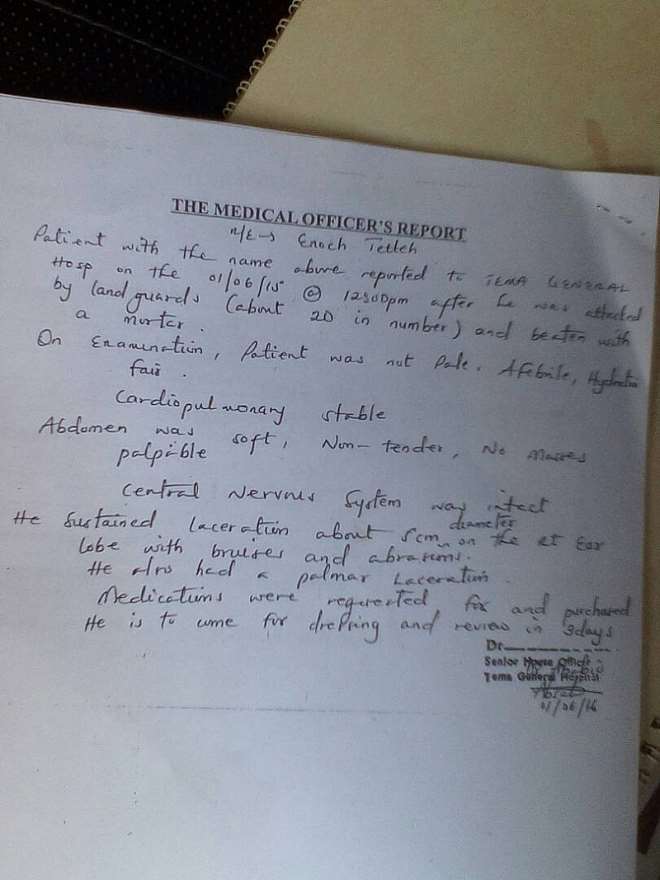 THE MEDICAL OFFICER'S REPORT
N/E → Enoch Tetteh
Patient with the name above reported to TEMA GENERAL
Hosp on the 01/06/15 @ 12:00pm after he was attacked
by land guards (about 20 in number) and beaten with
a mortar.
On Examination, Patient was not Pale, Afebrile, Hydration
fair.
Cardiopulmonary stable
Abdomen was soft, Non-tender, No masses
palpable
Central Nervous System was intact
He Sustained laceration about 5cm diameter on the Ear
lobe with bruises and abrasions.
He also had a palmar Laceration.
Medications were requested for and purchased
He is to come for dressing and review in 3days
Dr
Senior House Officer
Tema General Hospital
01/06/16